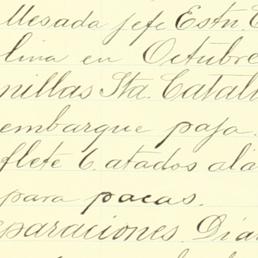 Mesada jefe Estn.
lina en Octubre
nillas Sta. Catali
embarque paja.
flete 6 atados ala
para pacas.
eparaciones. Dia